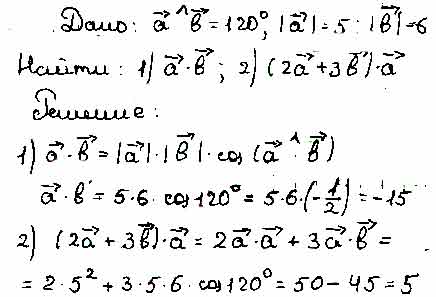 Дано: a⃗ ^ b⃗ = 120°, |a⃗| = 5; |b⃗| = 6
Найти: 1) a⃗ · b⃗; 2) (2a⃗ + 3b⃗) · a⃗
Решение:
1) a⃗ · b⃗ = |a⃗| · |b⃗| · cos (a⃗ ^ b⃗)
a⃗ · b⃗ = 5 · 6 · cos 120° = 5 · 6 · (-1/2) = -15
2) (2a⃗ + 3b⃗) · a⃗ = 2a⃗ · a⃗ + 3a⃗ · b⃗ =
= 2 · 5² + 3 · 5 · 6 · cos 120° = 50 - 45 = 5